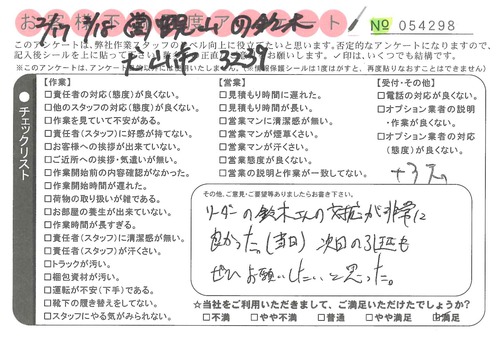 お客様不満足度アンケート
№ 054298
2/17 2/18
犬山市 3239
このアンケートは、弊社作業スタッフのレベル向上に役立てたいと思います。否定的なアンケートになりますので、
✓印は、いくつでも結構です。
チェックリスト
【作業】
□責任者の対応(態度)が良くない。
□他のスタッフの対応(態度)が良くない。
□作業を見ていて不安がある。
□責任者(スタッフ)に好感が持てない。
□お客様への挨拶が出来ていない。
□ご近所への挨拶・気遣いが無い。
□作業開始前の内容確認がなかった。
□作業開始時間が遅れた。
□荷物の取り扱いが雑である。
□お部屋の養生が出来ていない。
□作業時間が長すぎる。
□責任者(スタッフ)に清潔感が無い。
□責任者(スタッフ)が汗くさい。
□トラックが汚い。
□梱包資材が汚い。
□運転が不安(下手)である。
□靴下の履き替えをしてない。
□スタッフにやる気がみられない。
【営業】
□見積もり時間に遅れた。
□見積もり時間が長い。
□営業マンに清潔感が無い。
□営業マンが煙草くさい。
□営業マンが汗くさい。
□営業態度が良くない。
□営業の説明と作業が一致してない。
【受付・その他】
□電話の対応が良くない。
□オプション業者の説明
・作業が良くない。
□オプション業者の対応
(態度)が良くない。
その他、ご意見・ご要望等ありましたらお書き下さい。
リーダーの鈴木さんの対応が非常に
良かった。(当日) 次回の引越も
ぜひお願いしたいと思った。
☆当社をご利用いただきまして、ご満足いただけたでしょうか?
□不満 □やや不満 □普通 □やや満足 □満足